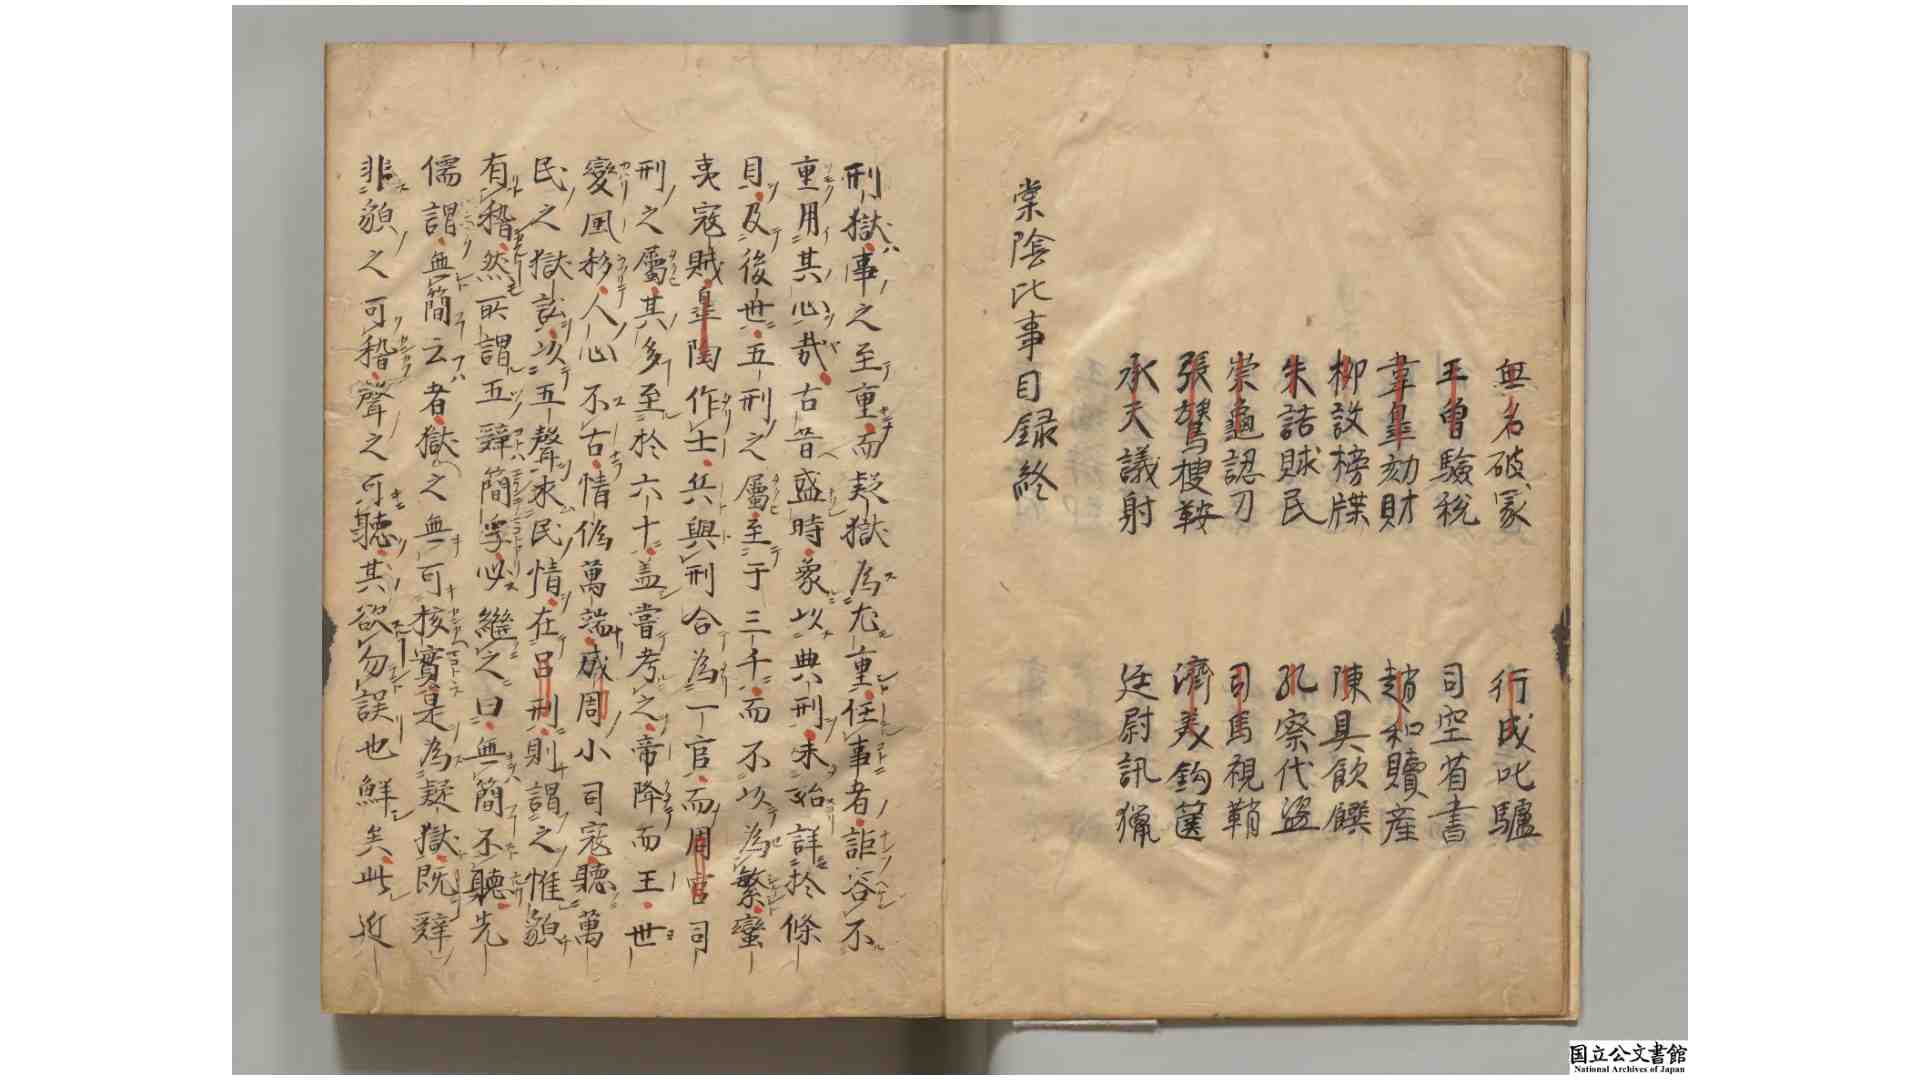 無名破家 行成叱驢
王曽驗税 司空省書
韋皐劾財 趙和贖産
柳設榜牒 陳具飲饌
朱詰賕民 孔察代盗
崇龜認刀 司馬視鞘
張鷟搜鞍 濟美鈎篋
承天議射 廷尉訊獵
棠陰比事目録終
刑獄事之至重而疑獄為尤重任事者詎容不
重用其心哉古昔盛時象以典刑未始詳於條
目及後世五刑之屬至于三千而不以為繁蠻
夷寇賊皐陶作士兵與刑合為一官而周官司
刑之屬其多至於六十盖嘗考之帝降而王世
變風移人心不古情偽萬端成周小司寇聽萬
民之獄訟以五聲求民情在呂刑則謂之惟貌
有稽然所謂五辭簡孚必繼之曰無簡不聽先
儒謂無簡云者獄之無可核實是為疑獄既辭
非貌之可稽聲之可聽其欲勿誤也鮮矣此近
国立公文書館
National Archives of Japan